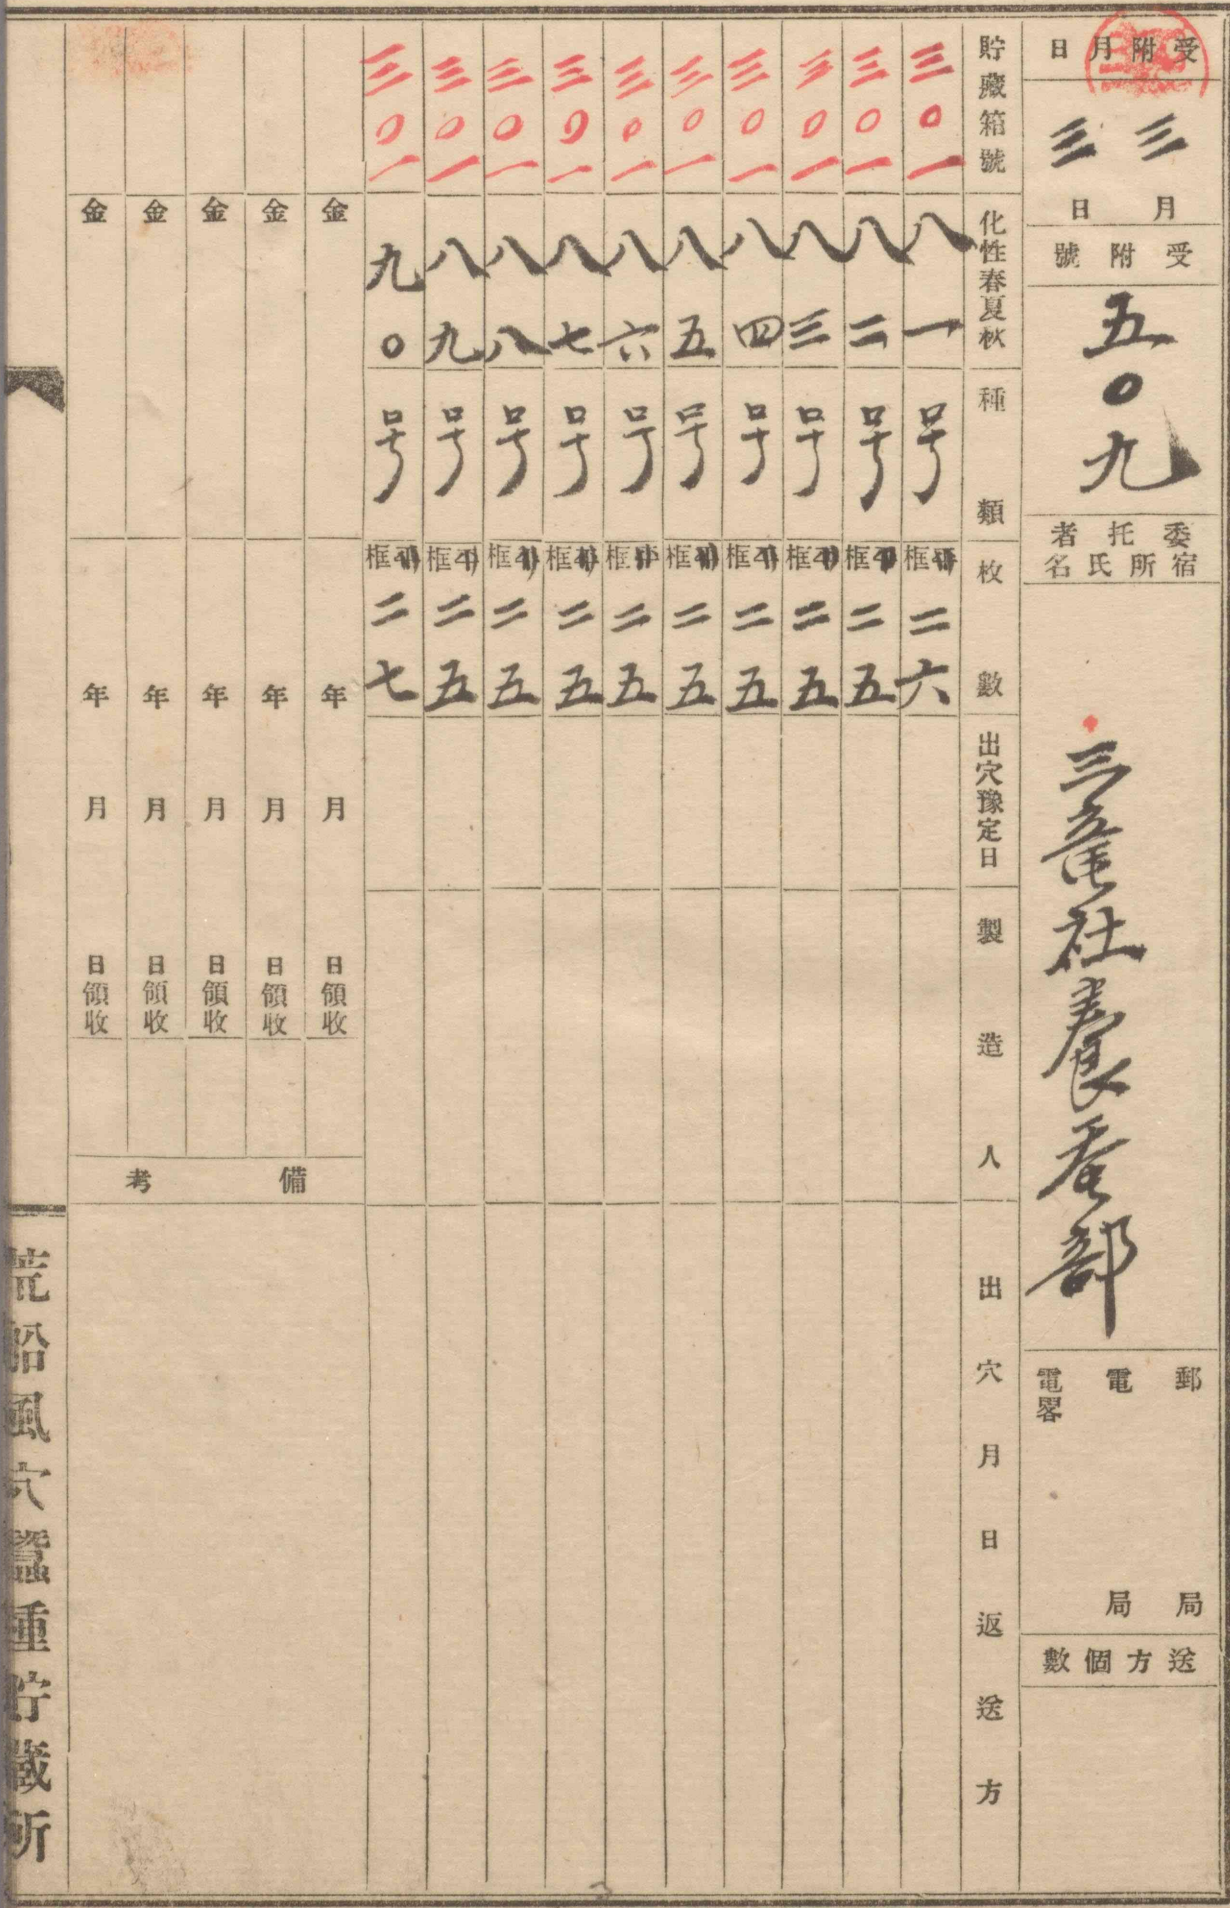 受附月日
三月
三日
受附號
五〇九
委托者
宿所氏名
三竜社養蚕部
郵 局
電 局
電畧
送方個數
貯藏箱號 化性春夏秋 種類 枚數 出穴豫定日 製造人 出穴月日返送方
三〇一 八一 号 框 二六
三〇一 八二 号 框 二五
三〇一 八三 号 框 二五
三〇一 八四 号 框 二五
三〇一 八五 号 框 二五
三〇一 八六 号 框 二五
三〇一 八七 号 框 二五
三〇一 八八 号 框 二五
三〇一 八九 号 框 二五
三〇一 九〇 号 框 二七
金 年 月 日領收
金 年 月 日領收
金 年 月 日領收
金 年 月 日領收
金 年 月 日領收
備考
荒船風穴蠶種貯藏所